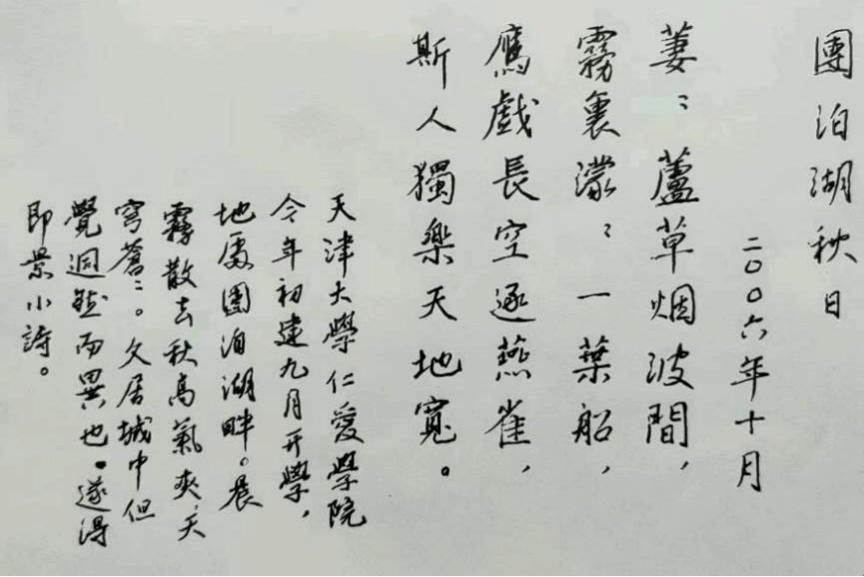 團泊湖秋日
二〇〇六年十月
萋〻蘆草烟波間，
霧裏濛〻一葉船，
鷹戲長空逐燕雀，
斯人獨樂天地寬。
天津大學仁愛學院
今年初建九月开學，
地處團泊湖畔。晨
霧散去秋高氣爽，天
穹蒼〻。久居城中但
覺迥然而異也。遂得
即景小詩。